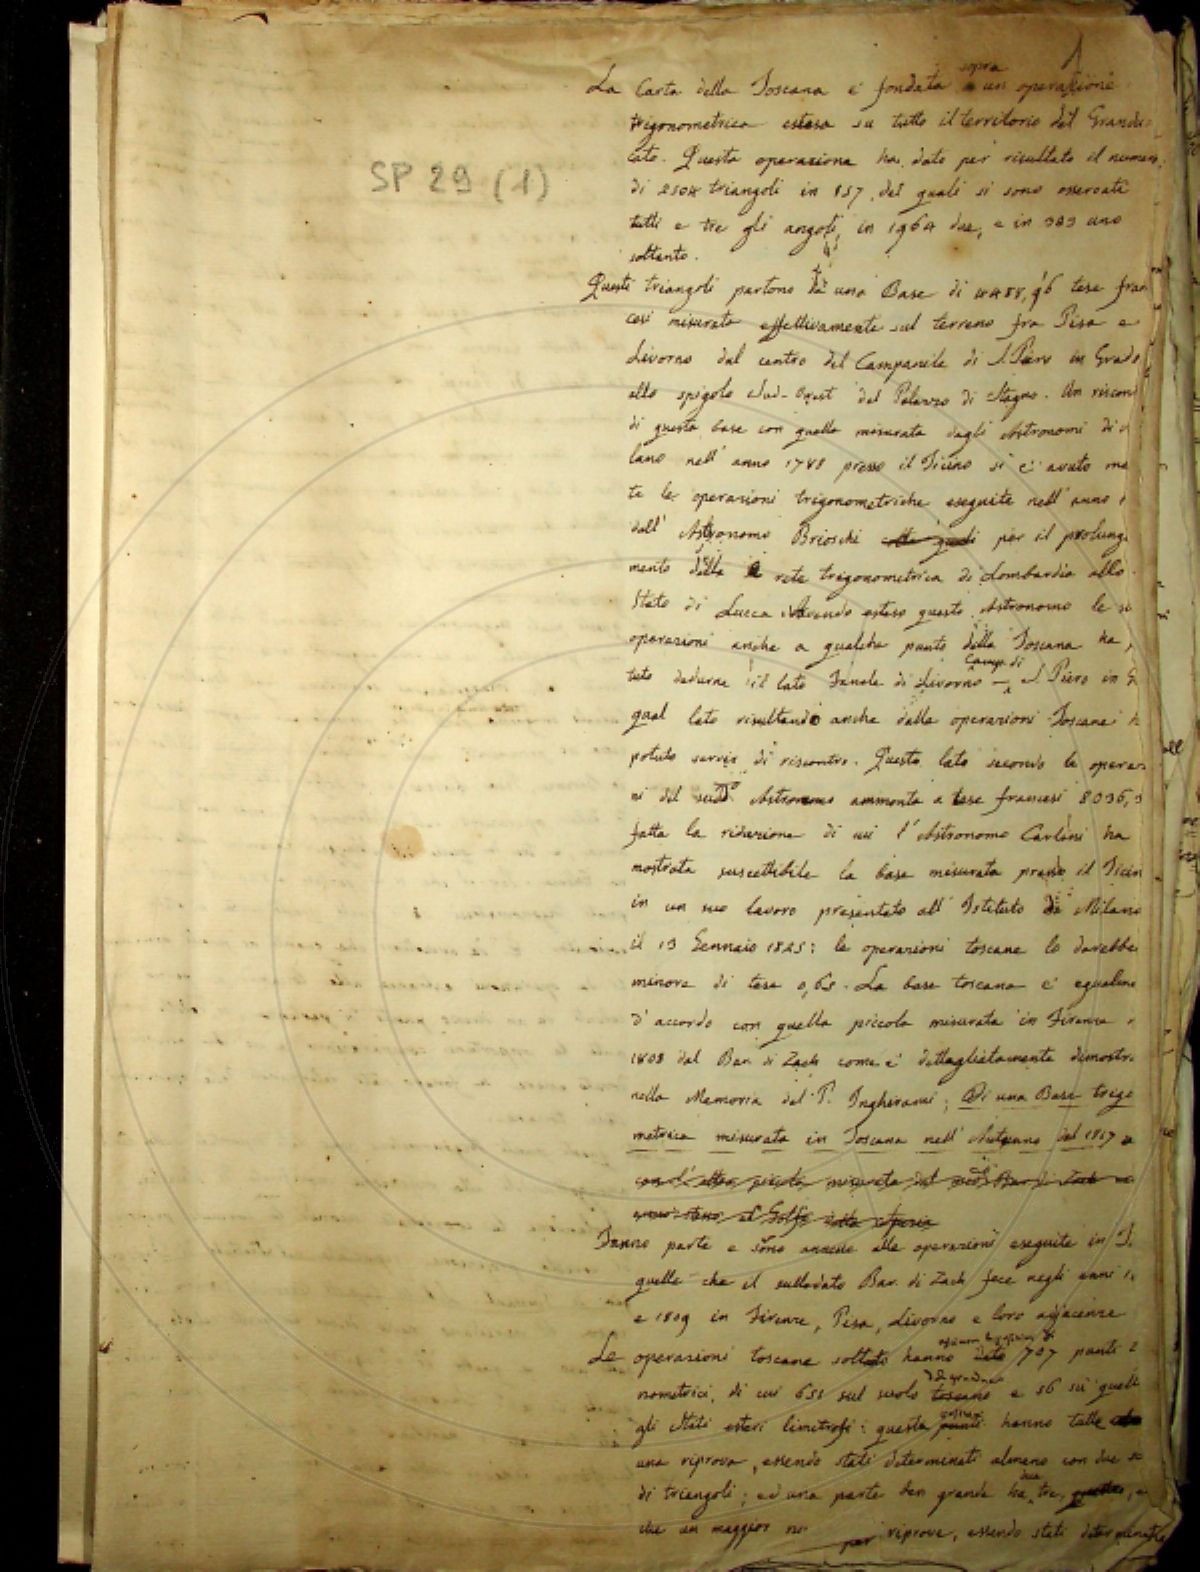 1
SP 29 (1)
La Carta della Toscana è fondata sopra un operazione
trigonometrica estesa su tutto il territorio del Grandu
cato. Questa operazione ha dato per risultato il numero
di 2504 triangoli in 857, dei quali si sono osservati
tutti e tre gli angoli, in 1964 due, e in 383 uno
soltanto.
Questi triangoli partono da una Base di 4488,96 tese fran
cesi misurata effettivamente sul terreno fra Pisa e
Livorno dal centro del Campanile di S. Piero in Grado
allo spigolo Sud-Ovest del Palazzo di Stagno. Un riscon
di questa base con quella misurata dagli Astronomi di
lano nell' anno 1788 presso il Ticino si è avuto
te le operazioni trigonometriche eseguite nell' anno
dall' Astronomo Brioschi colle quali per il prolunga
mento della rete trigonometrica di Lombardia allo
Stato di Lucca. Avendo esteso questo Astronomo le
operazioni anche a qualche punto della Toscana ha
tuto dedurne il lato Fanale di Livorno — Camp. di S. Piero in
qual lato risultando anche dalle operazioni Toscane
potuto servir di riscontro. Questo lato secondo le operazio
ni del sudd.º Astronomo ammonta a tese francesi 8036,
fatta la riduzione di cui l' Astronomo Carlini ha
mostrata suscettibile la base misurata presso il Ticin
in un suo lavoro presentato all' Istituto di Milano
il 13 Gennaio 1825: le operazioni toscane lo darebbe
minore di tese 0,65. La base toscana è egualme
d' accordo con quella piccola misurata in Firenze
1808 dal Bar. di Zach come è dettagliatamente dimostra
nella Memoria del P. Inghirami; Di una Base trigo
metrica misurata in Toscana nell' Autunno del 1817
con l' altra piccola misurata dal sudº Bar. di Zach
anno stesso al Golfo della Spezia
Fanno parte e sono annesse alle operazioni eseguite in T.
quelle che il sullodato Bar. di Zach fece negli anni
e 1809 in Firenze, Pisa, Livorno e loro adjacenze
Le operazioni toscane soltanto hanno dato 707 punti
nometrici, di cui 651 sul suolo toscano e 56 su quell
gli Stati esteri limitrofi: questa punti hanno tutte
una riprova, essendo stati determinati almeno con due
di triangoli; ed una parte ben grande ha due, tre, quattro,
che un maggior riprove, essendo stati determinate